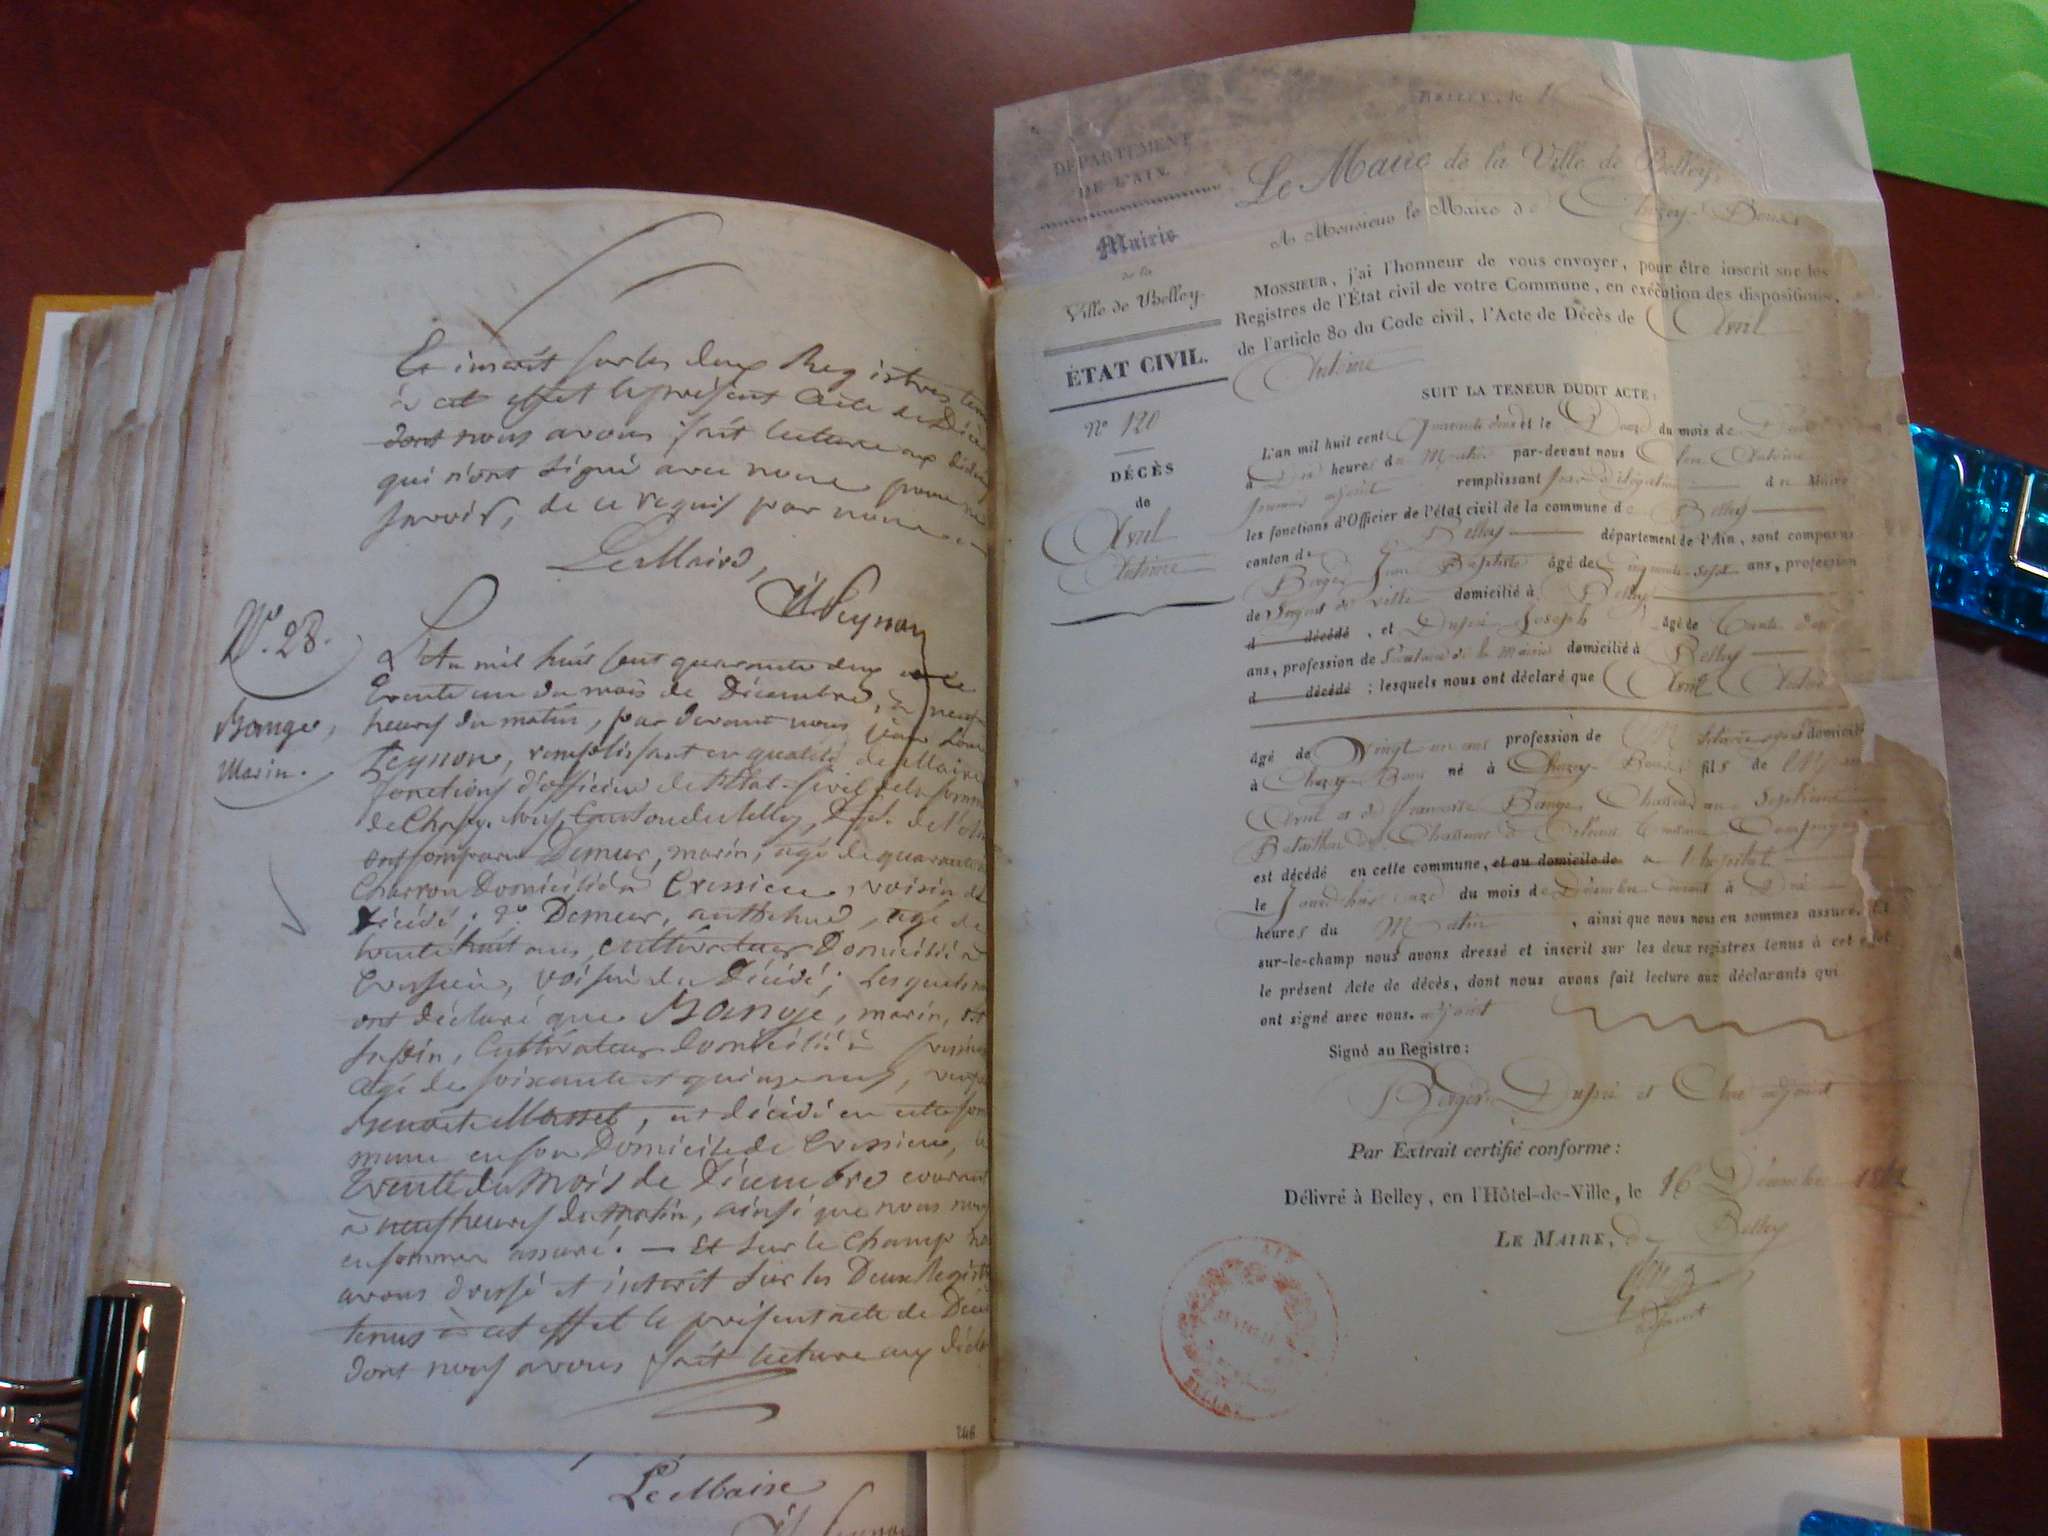 Et inscrit sur les deux Registres tenus
à cet effet le présent acte de Décès
dont nous avons fait lecture aux
qui n'ont signé avec nous pour ne
savoir, de ce requis par nous
Le Maire,
Peynon
N°. 28.
Bange,
Marin.
L'An mil huit cent quarante deux et le
trente un du mois de Décembre, à neuf
heures du matin, par devant nous Jean Louis
Peynon, remplissant en qualité de Maire
fonctions d'officier de l'Etat-Civil de la Commune
de Chazey-Bons, Canton de Belley, Dépt. de l'Ain
ont comparu Demeur, marin, agé de quarante
Charron Domicilié à Cressieu, voisin du
décédé; 2°. Demeur, anthelme, agé de
trente huit ans, cultivateur Domicilié à
Cressieu, voisin du Décédé; Lesquels nous
ont déclaré que Bange, marin,
Cultivateur domicilié à Cressieu
agé de soixante et quinze ans,
Masset, est décédé en cette Com
mune en son Domicile de Cressieu, le
trente du mois de Décembre courant
à neuf heures du matin, ainsi que nous nous
en sommes assuré. — Et sur le champ nous
avons dressé et inscrit sur les Deux Registres
tenus à cet effet le présent acte de Décès
dont nous avons fait lecture aux
248
Le Maire
Peynon
DÉPARTEMENT
DE L'AIN.
Mairie
de la
Ville de Belley
ÉTAT CIVIL.
N° 120
DÉCÈS
de
Avril
Antoine
Belley, le 16
Le Maire de la Ville de Belley,
A Monsieur le Maire de Chazey-Bons
MONSIEUR, j'ai l'honneur de vous envoyer, pour être inscrit sur les
Registres de l'État civil de votre Commune, en exécution des dispositions
de l'article 80 du Code civil, l'Acte de Décès de Avril
Antoine
SUIT LA TENEUR DUDIT ACTE:
L'an mil huit cent Quarante deux et le Douze du mois de Décembre
à Dix heures du Matin par-devant nous Antoine
adjoint remplissant par délégation de Maire
les fonctions d'Officier de l'état civil de la commune de Belley
canton de Belley département de l'Ain, sont comparus
Berger Jean Baptiste âgé de Cinquante-Sept ans, profession
de Sergent de Ville domicilié à Belley
d décédé, et Joseph âgé de Trente
ans, profession de Secrétaire de la Mairie domicilié à Belley
d décédé; lesquels nous ont déclaré que Avril Antoine
âgé de Vingt un ans profession de Militaire domicilié
à Chazey-Bons né à Chazey-Bons, fils de
Avril et de Françoise Bange, Chasseur au Septième
Bataillon de Chasseurs d'Orléans Compagnie
est décédé en cette commune, et au domicile de à l'hopital
le du mois de Décembre à Dix
heures du Matin, ainsi que nous nous en sommes assuré. Et
sur-le-champ nous avons dressé et inscrit sur les deux registres tenus à cet effet
le présent Acte de décès, dont nous avons fait lecture aux déclarants qui
ont signé avec nous. adjoint
Signé au Registre:
Berger, et adjoint
Par Extrait certifié conforme:
Délivré à Belley, en l'Hôtel-de-Ville, le 16 Décembre 1842
LE MAIRE, de Belley
adjoint
AIN
BELLEY